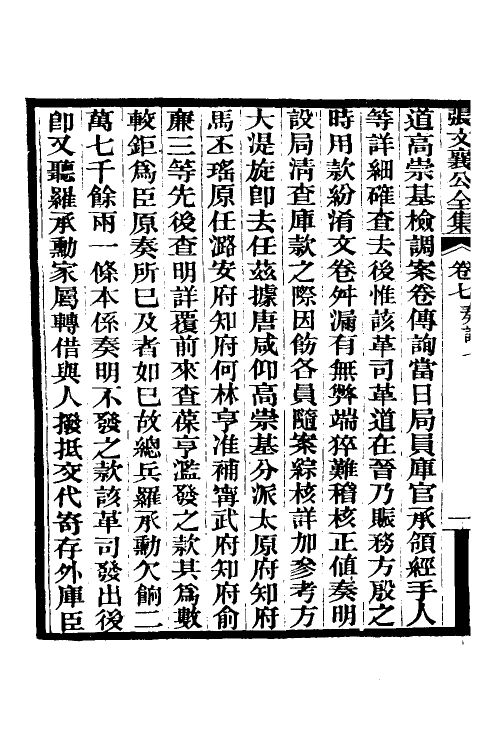 張文襄公全集 卷七 奏議七 一
道高崇基檢調案卷傳詢當日局員庫官承領經手人
等詳細確查去後惟該革司革道在晉乃賑務方殷之
時用款紛淆文卷舛漏有無弊端猝難稽核正值奏明
設局清查庫款之際因飭各員隨案綜核詳加參考方
大湜旋卽去任茲據唐咸仰高崇基分派太原府知府
馬丕瑤原任潞安府知府何林亨准補甯武府知府俞
廉三等先後查明詳覆前來查葆亨濫發之款其爲數
較鉅爲臣原奏所已及者如已故總兵羅承勳欠餉二
萬七千餘兩一條本係奏明不發之款該革司發出後
卽又聽羅承勳家屬轉借與人撥抵交代寄存外庫臣